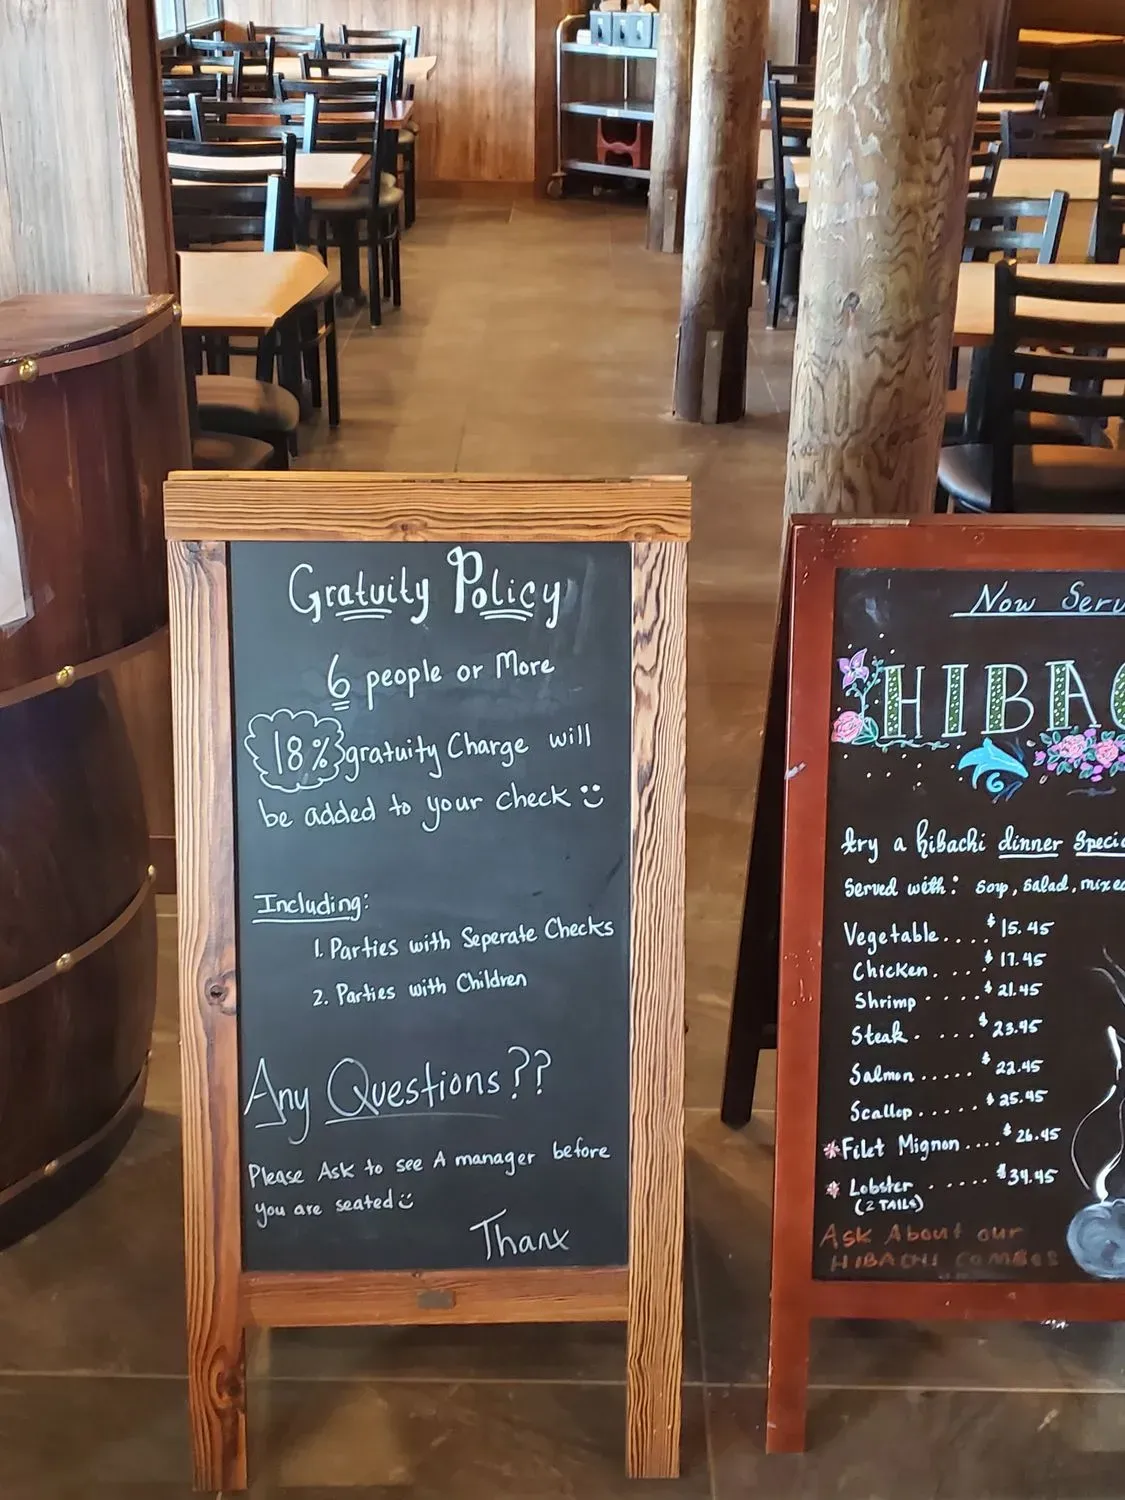 Gratuity Policy
6 people or More
18% gratuity Charge will
be added to your check
Including:
1. Parties with Seperate Checks
2. Parties with Children
Any Questions??
Please Ask to see A manager before
you are seated
Thanx
Now Serv
HIBAC
try a hibachi dinner Speci
Served with: soup, salad, mixed
Vegetable.... $15.45
Chicken.... $17.45
Shrimp.... $21.45
Steak..... $23.45
Salmon..... $22.45
Scallop...... $25.45
*Filet Mignon.... $26.45
* Lobster ..... $34.45
(2 TAILS)
Ask About our
HIBACHI COMBOS